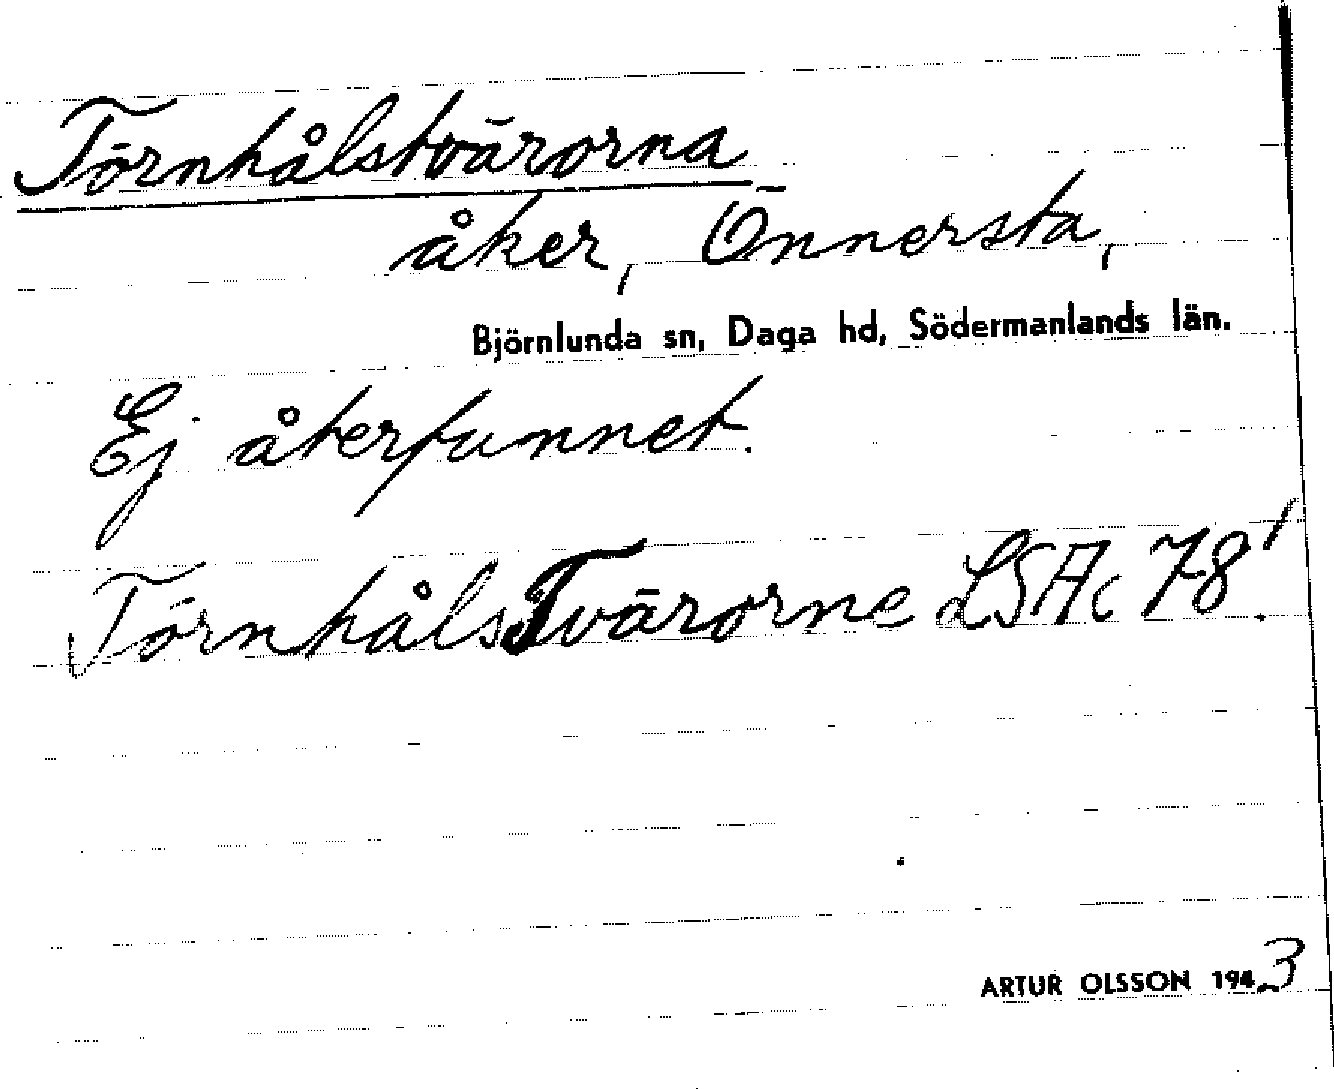 Törnhålstvärorna
åker, Önnersta,
Björnlunda sn, Daga hd, Södermanlands län.
Ej återfunnet.
TörnhålsTvärorne LSAc 78!
ARTUR OLSSON 1943